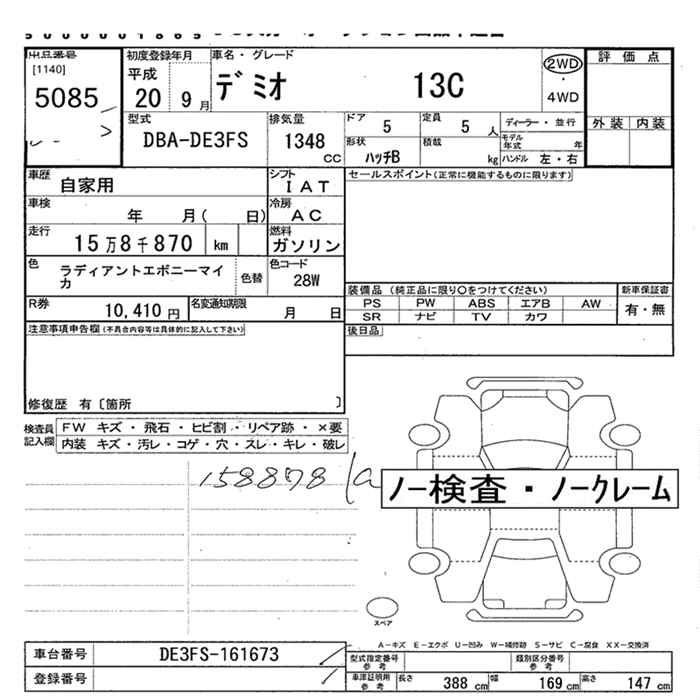 出品番号
[1140]
5085
初度登録年月
平成
20 9月
車名・グレード
デミオ 13C
2WD
・
4WD
評価点
外装 内装
型式
DBA-DE3FS
排気量
1348
CC
ドア
5
定員
5 人
ディーラー・並行
モデル
年式 年
形状
ハッチB
積載
kg
ハンドル 左・右
車歴
自家用
シフト
IAT
セールスポイント(正常に機能するものに限ります)
車検
年 月( 日)
冷房
AC
走行
15万8千870 km
燃料
ガソリン
色
ラディアントエボニーマイ
カ
色替
色コード
28W
装備品 (純正品に限り○をつけてください)
新車保証書
PS PW ABS エアB AW
有・無
SR ナビ TV カワ
R券
10,410 円
名変通知期限
月 日
後日品
注意事項申告欄(不具合内容等は具体的に記入して下さい)
修復歴 有〔箇所 〕
検査員
記入欄
FW キズ・飛石・ヒビ割・リペア跡・×要
内装 キズ・汚レ・コゲ・穴・スレ・キレ・破レ
158878
ノー検査・ノークレーム
スペア
A-キズ E-エクボ U-凹み W-補修跡 S-サビ C-腐食 XX-交換済
車台番号 DE3FS-161673
登録番号
型式指定番号
参考
類別区分番号
参考
車庫証明用
参考
長さ 388 cm 幅 169 cm 高さ 147 cm